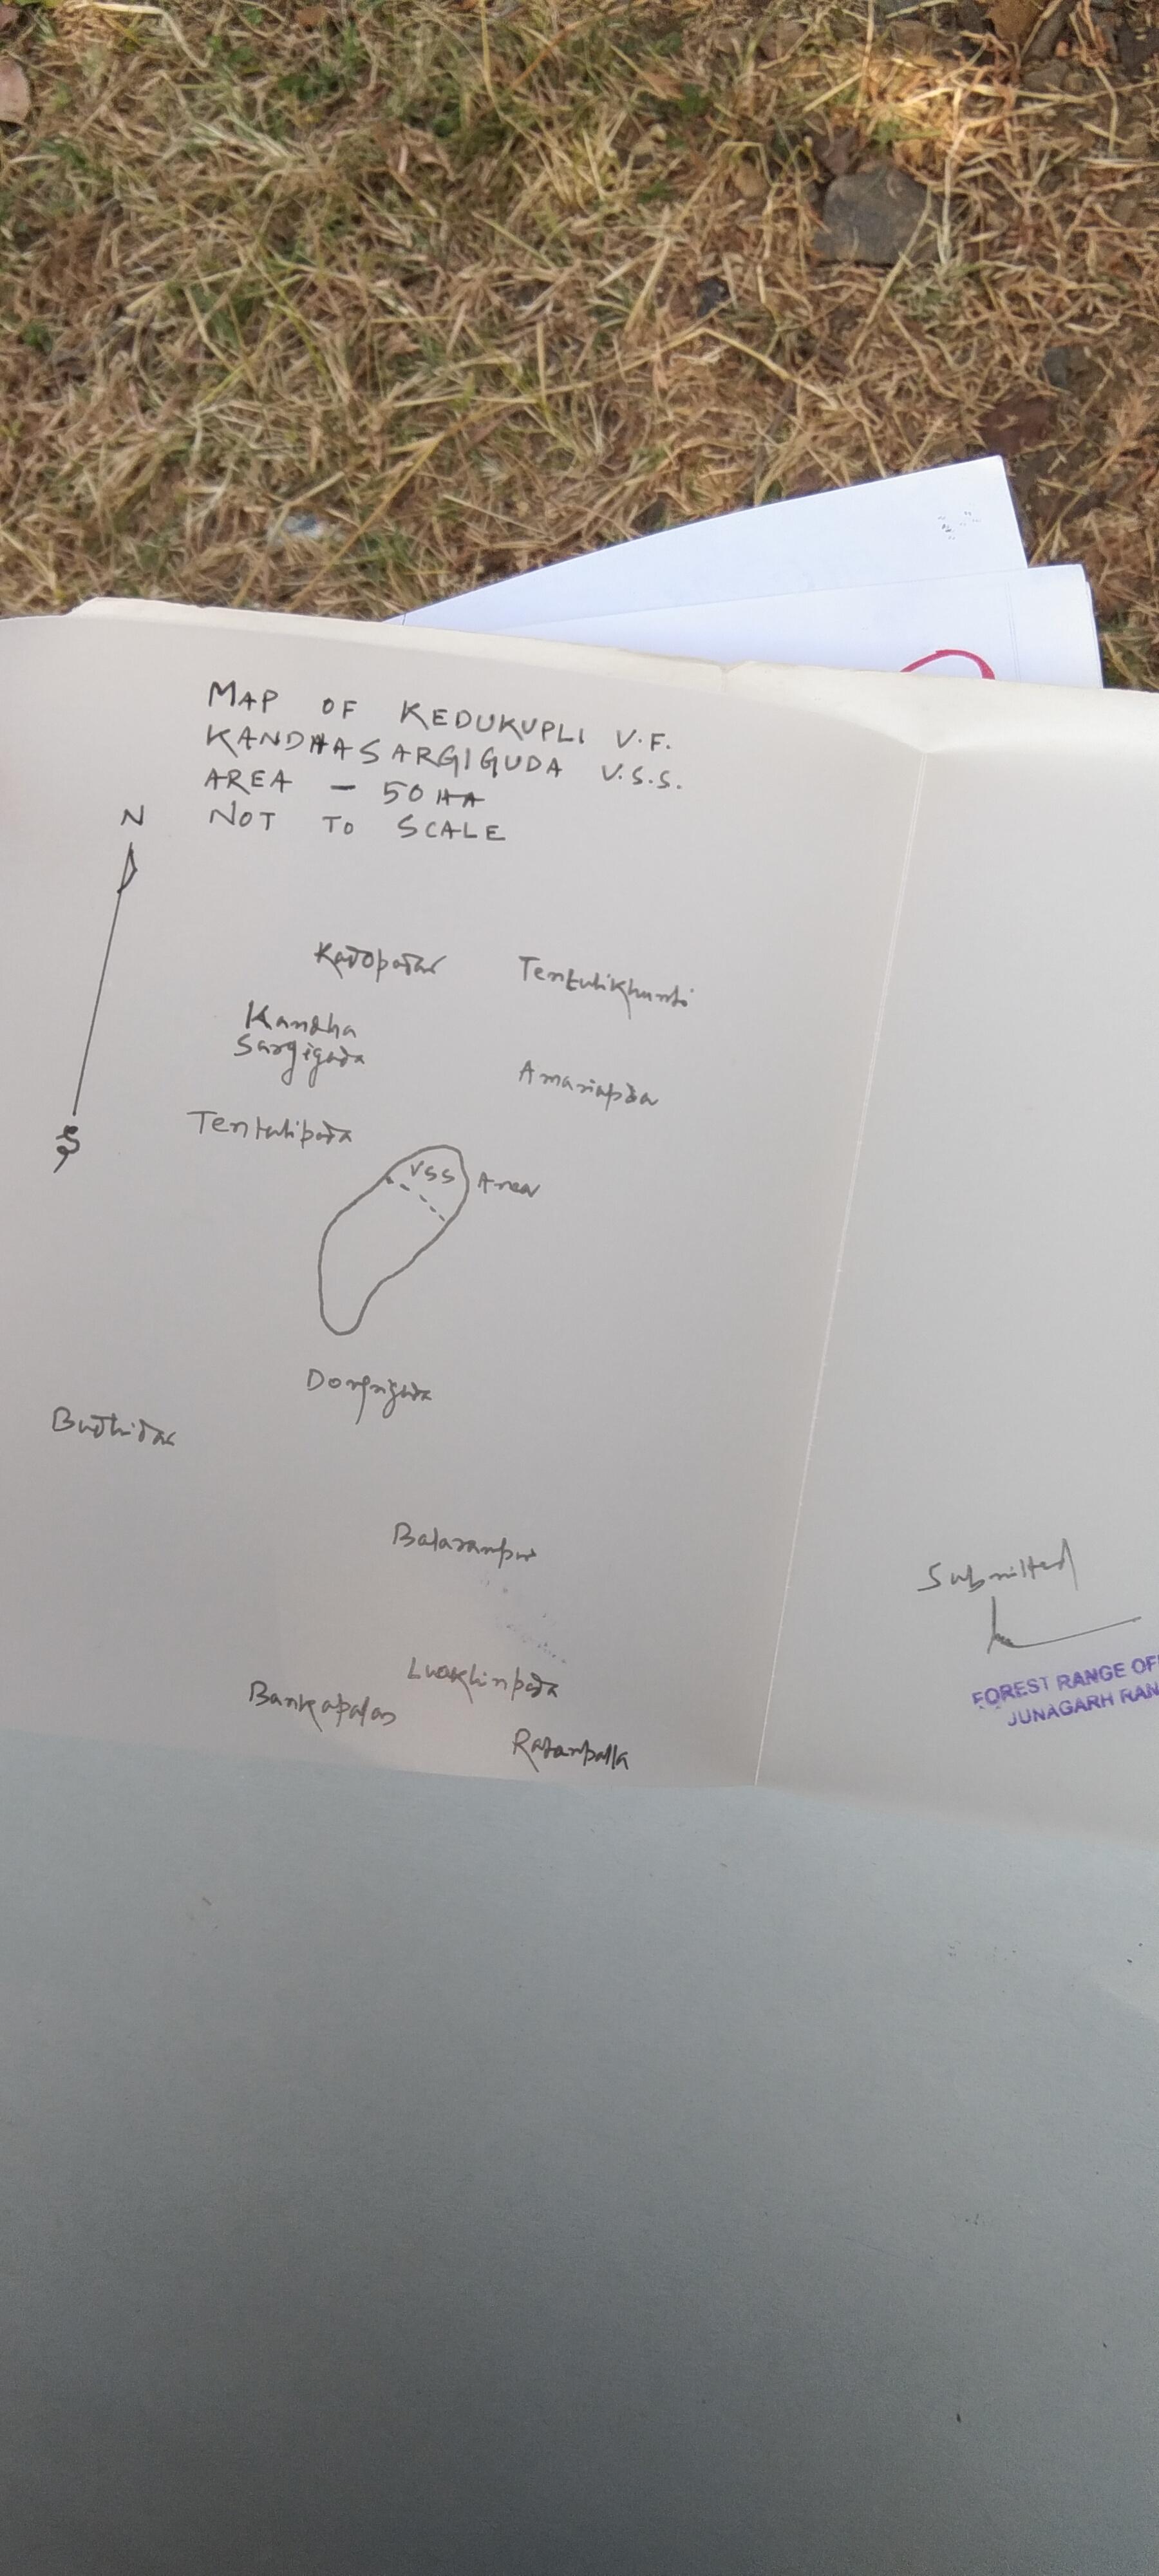 MAP OF KEDUKUPLI V.F.
KANDHASARGIGUDA V.S.S.
AREA - 50 HA
NOT TO SCALE
N
S
Kadopadar
Tentulikhunti
Kandha
Sargiguda
Amariapda
Tentulipada
VSS Area
Dongriguda
Budhidar
Balarampur
Bankapalas
Ratanpalla
Submitted
FOREST RANGE OF
JUNAGARH RAN